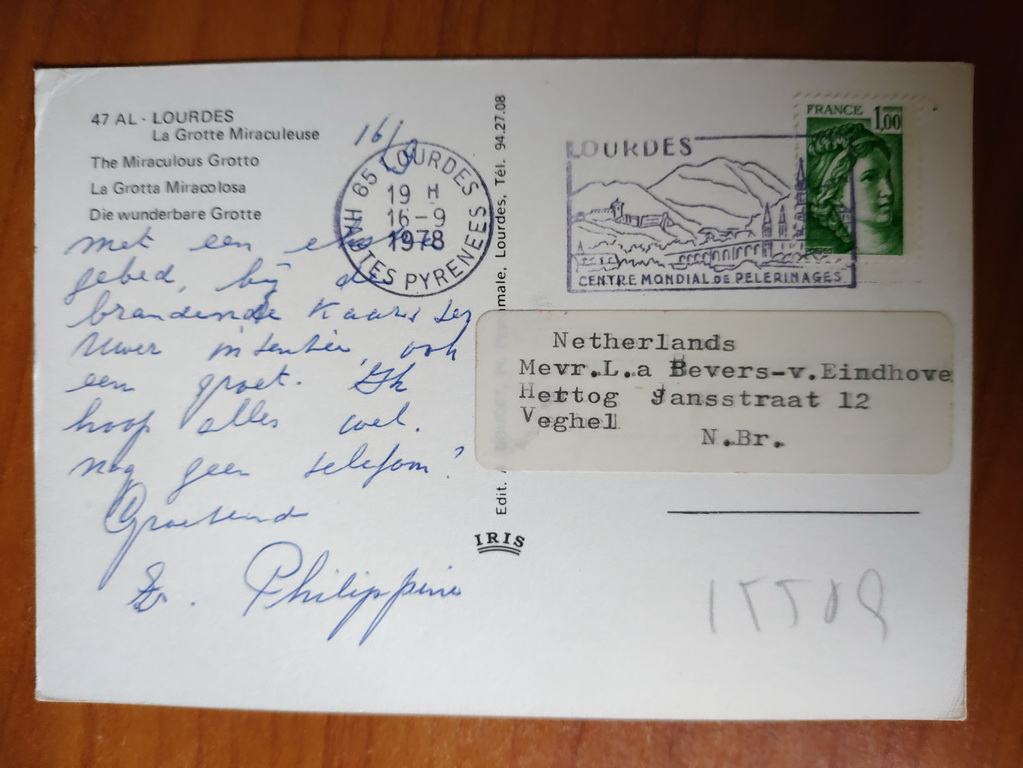 47 AL - LOURDES
La Grotte Miraculeuse
The Miraculous Grotto
La Grotta Miracolosa
Die wunderbare Grotte
16/9
65 LOURDES
19 H
16-9
1978
HAUTES PYRENEES
met een
gebed, bij de
brandende Kaars ter
Uwer intentie, ook
een groet. Ik
hoop alles wel.
nog geen telefoon?
Groetend
Zr. Philippine
Edit. Lourdes, Tél. 94.27.08
IRIS
LOURDES
CENTRE MONDIAL DE PELERINAGES
FRANCE 1,00
Netherlands
Mevr.L.a Bevers-v.Eindhove
Hertog Jansstraat 12
Veghel
N.Br.